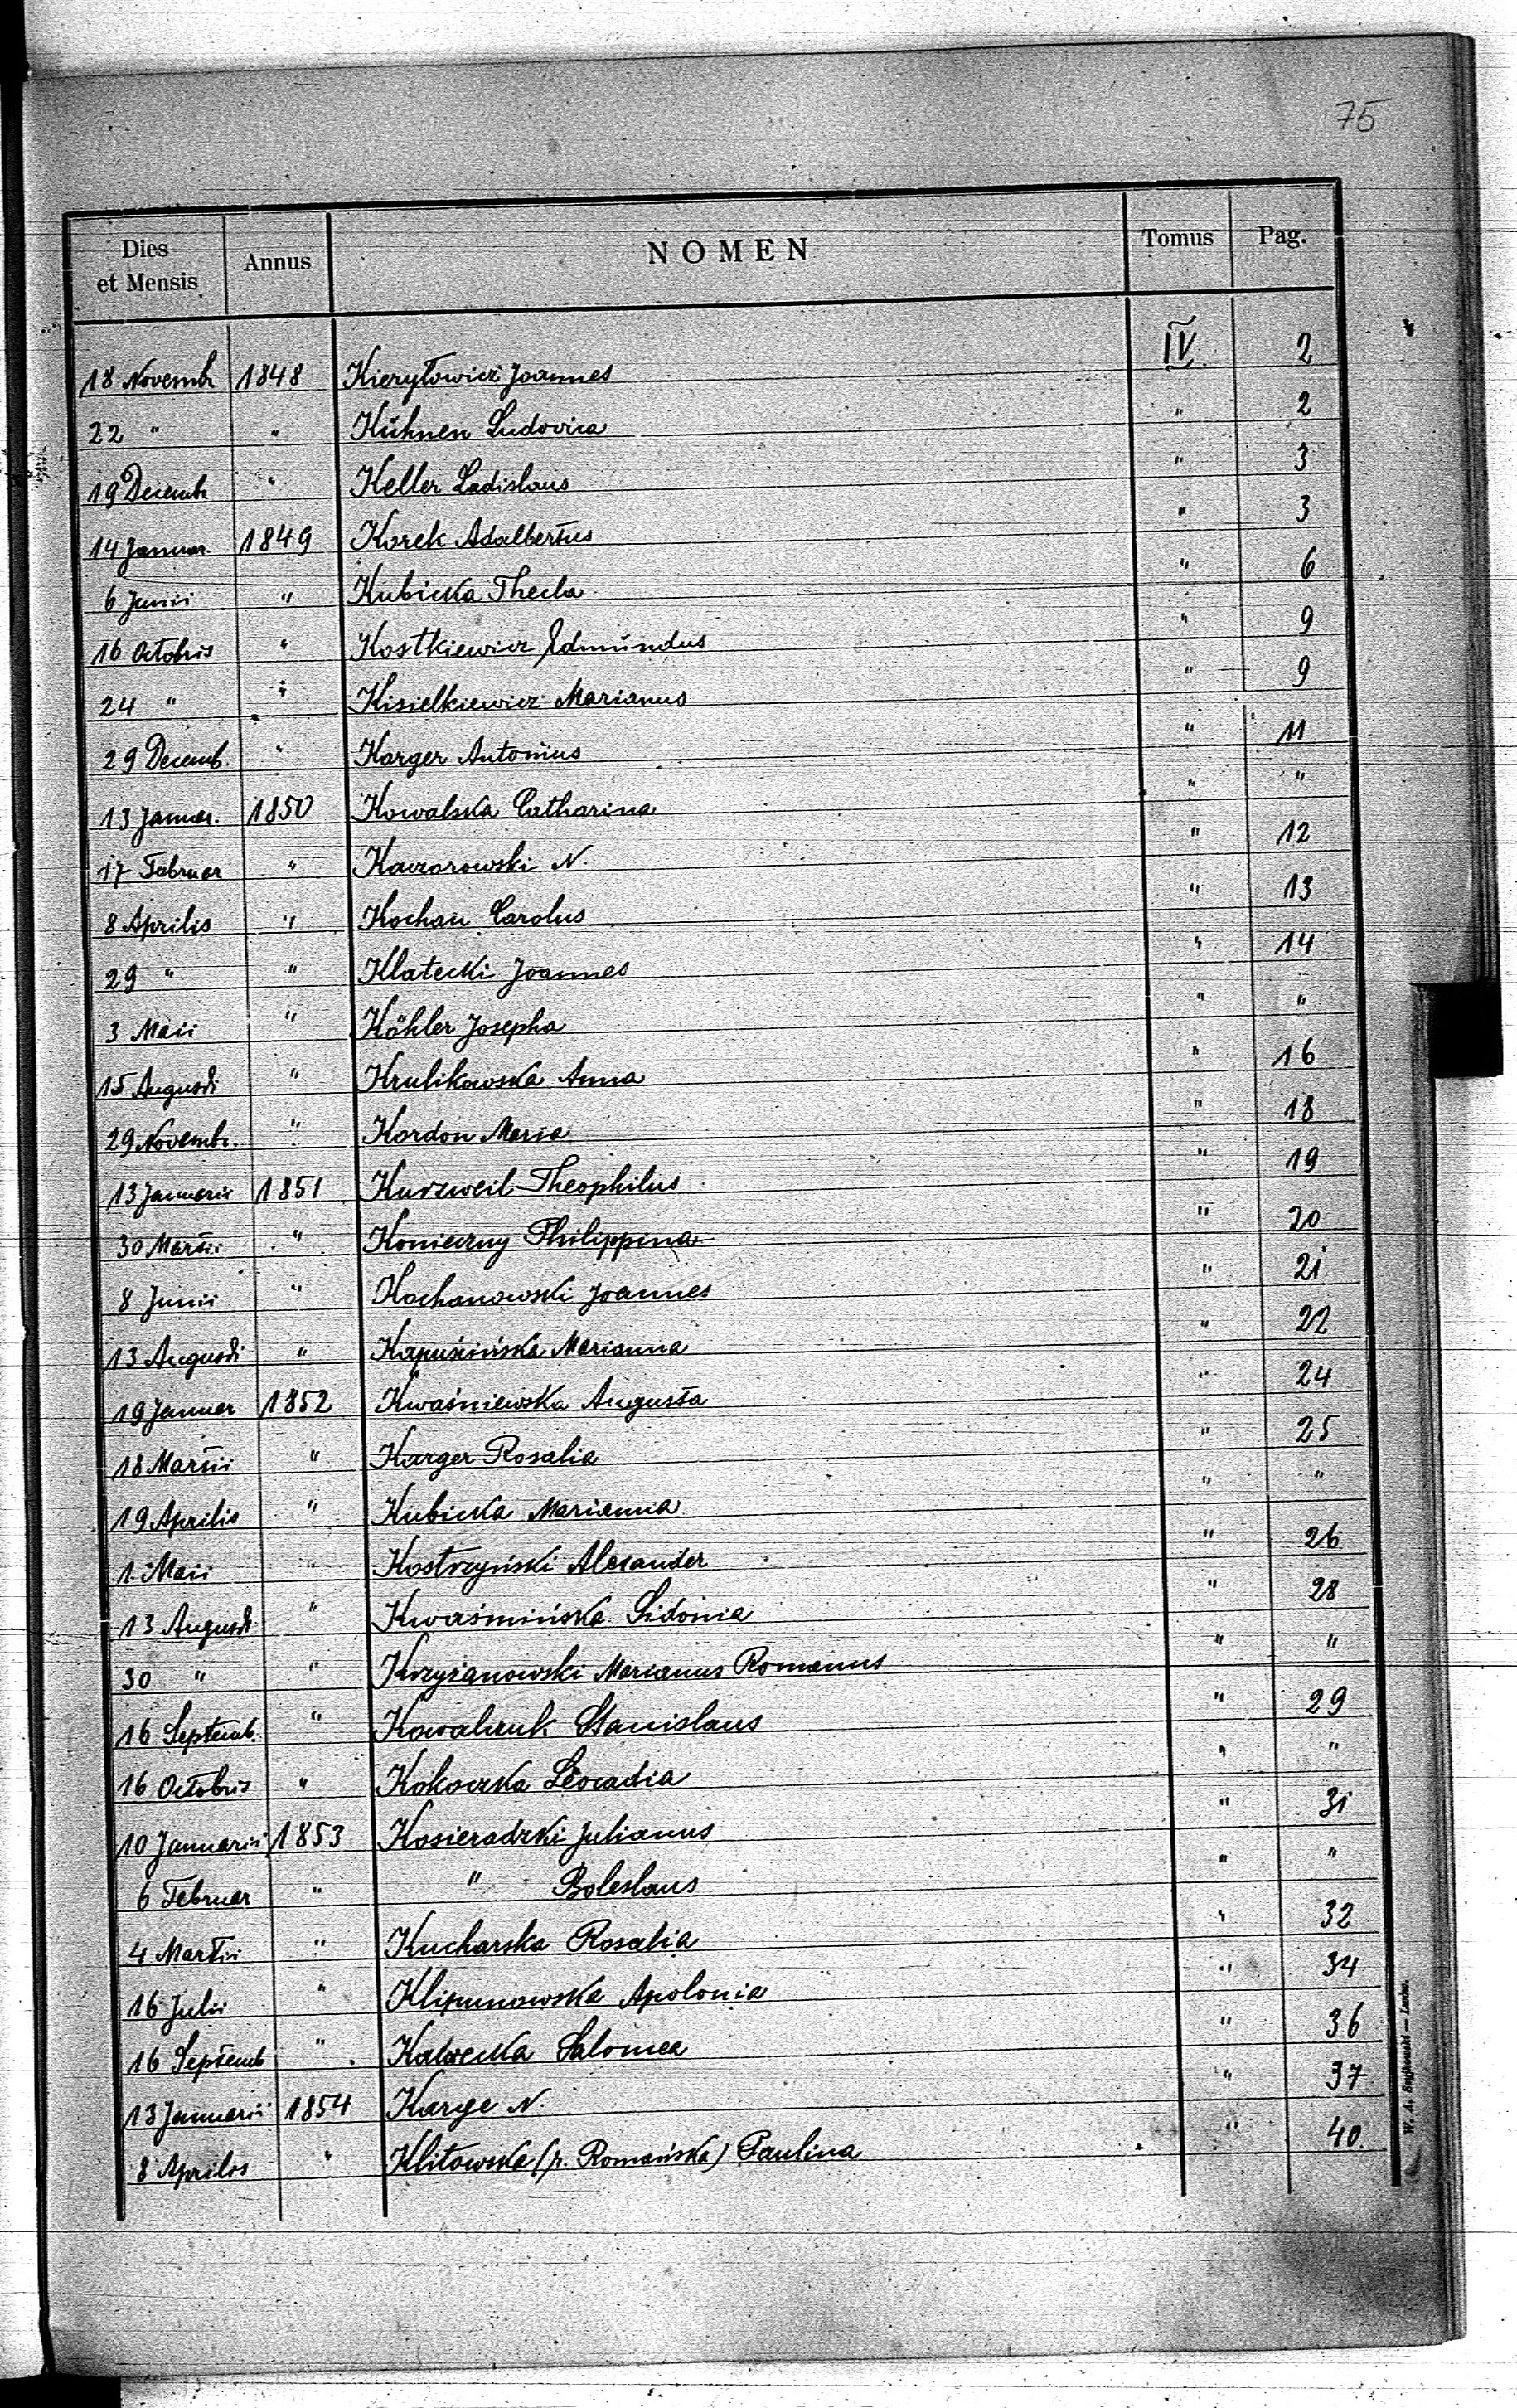 75
Dies et Mensis Annus NOMEN Tomus Pag.
18 Novembr 1848 Kieryłowicz Joannes IV 2
22 " " Kühnen Ludovica " 2
19 Decembr " Keller Ladislaus " 3
14 Januar. 1849 Korek Adalbertus " 3
6 Junii " Kubicka Thecla " 6
16 Octobris " Kostkiewicz Edmundus " 9
24 " " Kisielkiewicz Marianus " 9
29 Decemb. " Karger Antonius " 11
13 Januar. 1850 Kowalska Catharina " "
17 Februar " Kaczorowski N. " 12
8 Aprilis " Kochan Carolus " 13
29 " " Klatecki Joannes " 14
3 Maii " Köhler Josepha " "
15 Augusti " Krulikowska Anna " 16
29 Novembr. " Kordon Maria " 18
13 Januarii 1851 Kurzweil Theophilus " 19
30 Martii " Konieczny Philippina " 20
8 Junii " Kochanowski Joannes " 21
13 Augusti " Kapuścińska Marianna " 22
19 Januar 1852 Kwaśniewska Augusta " 24
18 Martii " Karger Rosalia " 25
19 Aprilis " Kubicka Marianna " "
1. Maii " Kostrzyński Alexander " 26
13 Augusti " Kwaśmińska Sidonia " 28
30 " " Krzyżanowski Marianus Romanus " "
16 Septemb. " Kowalczuk Stanislaus " 29
16 Octobris " Kokoczka Leocadia " "
10 Januarii 1853 Kosieradzki Julianus " 31
6 Februar " " Boleslaus " "
4 Martii " Kucharska Rosalia " 32
16 Julii " Klipunowska Apolonia " 34
16 Septemb " Kalwecka Salomea " 36
13 Januarii 1854 Karge N. " 37
8 Aprilis " Klitowska (p. Romańska) Paulina " 40.